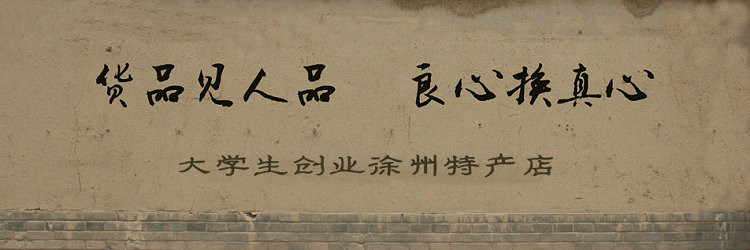 货品见人品 良心换真心
大学生创业徐州特产店